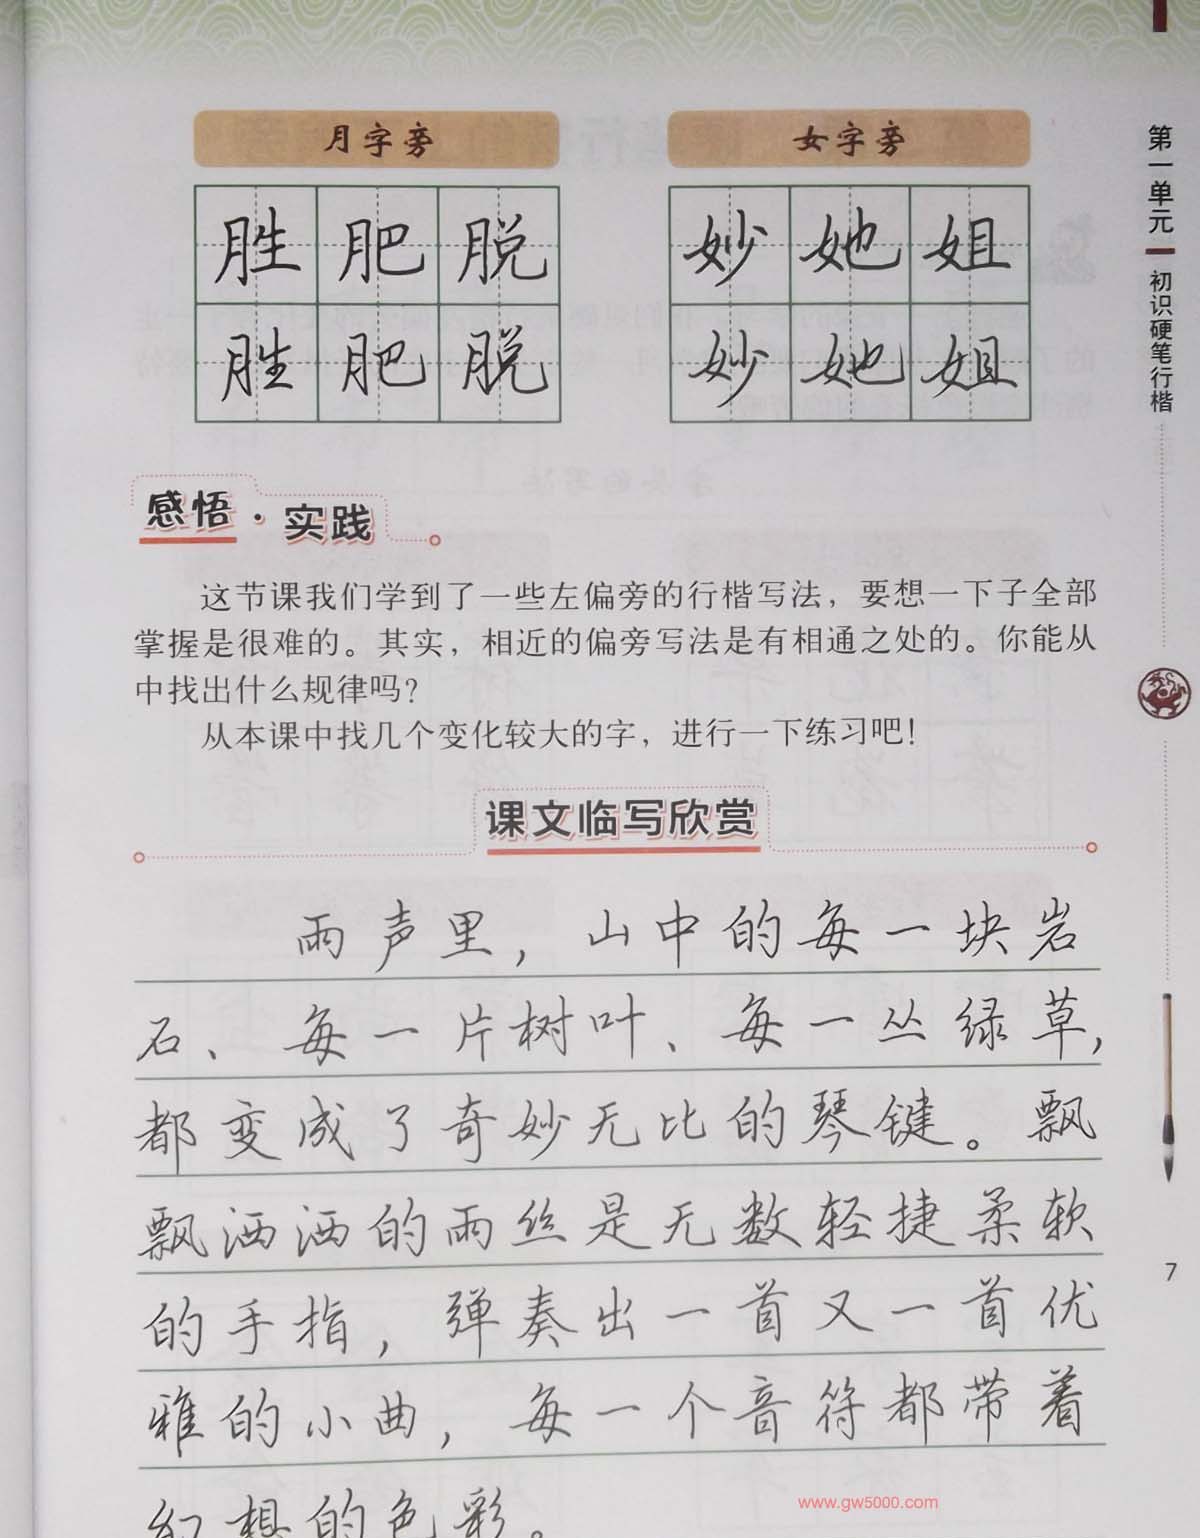 月字旁
女字旁
胜 肥 脱
胜 肥 脱
妙 她 姐
妙 她 姐
第一单元 初识硬笔行楷
感悟·实践
这节课我们学到了一些左偏旁的行楷写法，要想一下子全部
掌握是很难的。其实，相近的偏旁写法是有相通之处的。你能从
中找出什么规律吗？
从本课中找几个变化较大的字，进行一下练习吧！
课文临写欣赏
雨声里，山中的每一块岩
石、每一片树叶、每一丛绿草，
都变成了奇妙无比的琴键。飘
飘洒洒的雨丝是无数轻捷柔软
的手指，弹奏出一首又一首优
雅的小曲，每一个音符都带着
幻想的色彩。
7
www.gw5000.com